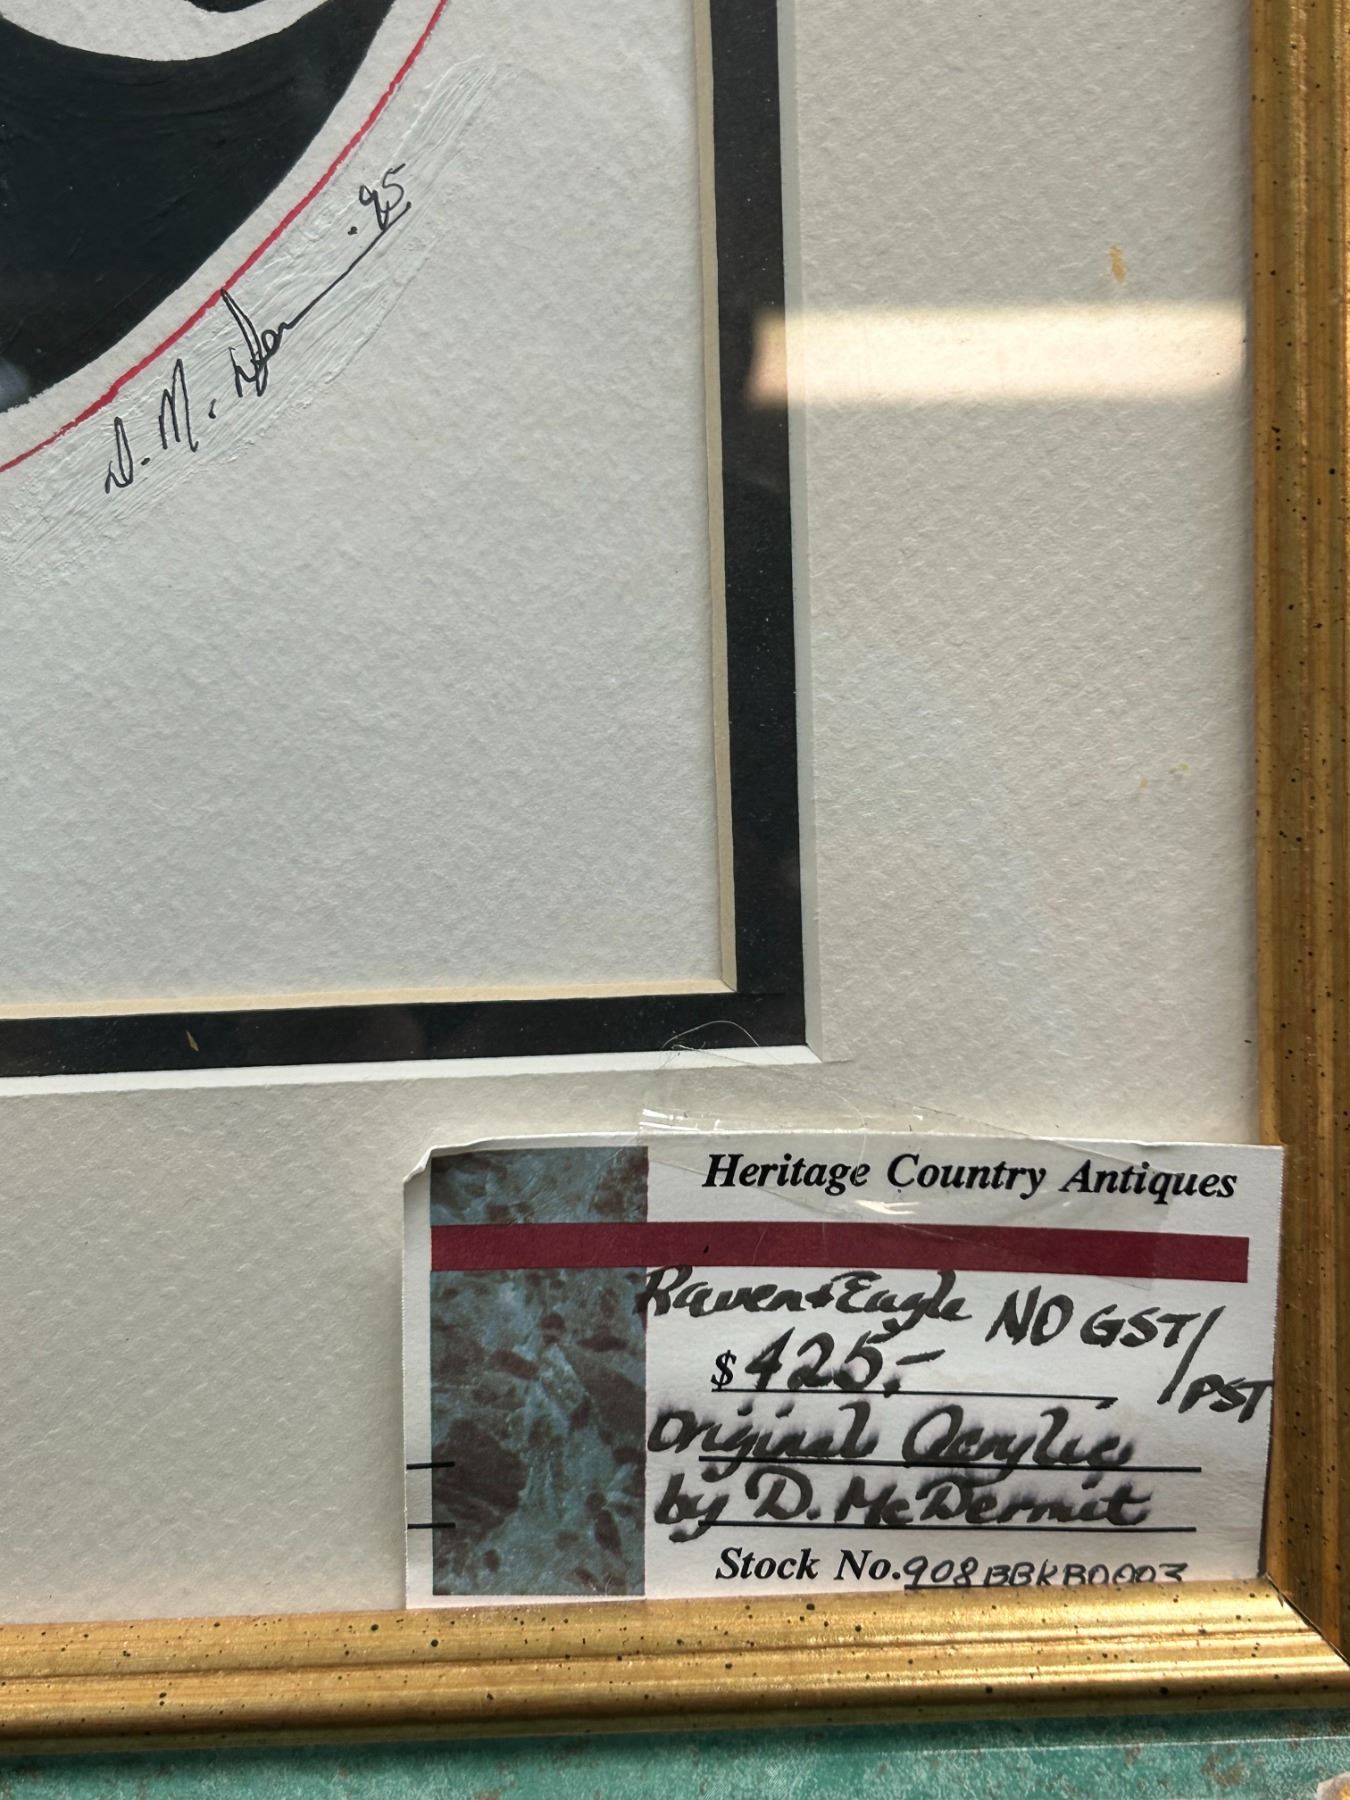 D. Mc Derm . 95
Heritage Country Antiques
Raven & Eagle NO GST/
$425.- PST
Original Acrylic
by D. McDermit
Stock No. 908BBKB0003